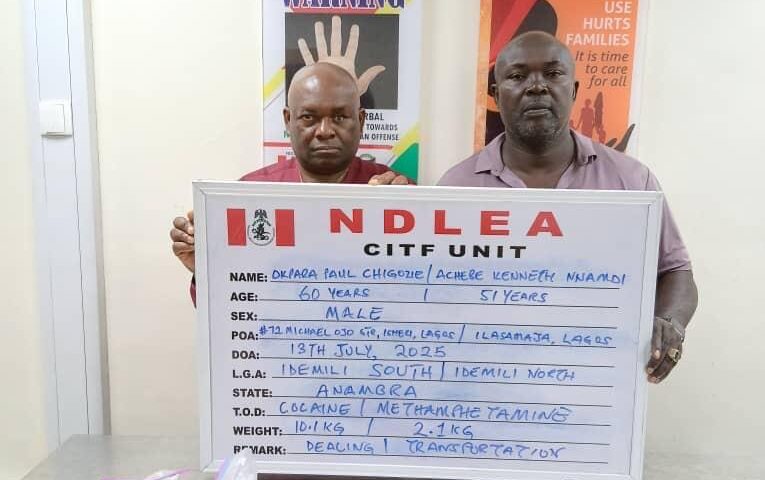 WARNING
RBAL
TOWARDS
AN OFFENSE
USE
HURTS
FAMILIES
It is time
to care
for all
NDLEA
CITF UNIT
NAME: OKPARA PAUL CHIGOZIE / ACHEBE KENNETH NNAMDI
AGE: 60 YEARS | 51 YEARS
SEX: MALE
POA: #72 MICHAEL OJO STR, ISHERI, LAGOS / ILASAMAJA, LAGOS
DOA: 13TH JULY, 2025
L.G.A: IDEMILI SOUTH / IDEMILI NORTH
STATE: ANAMBRA
T.O.D: COCAINE / METHAMPHETAMINE
WEIGHT: 10.1KG / 2.1KG
REMARK: DEALING / TRANSPORTATION